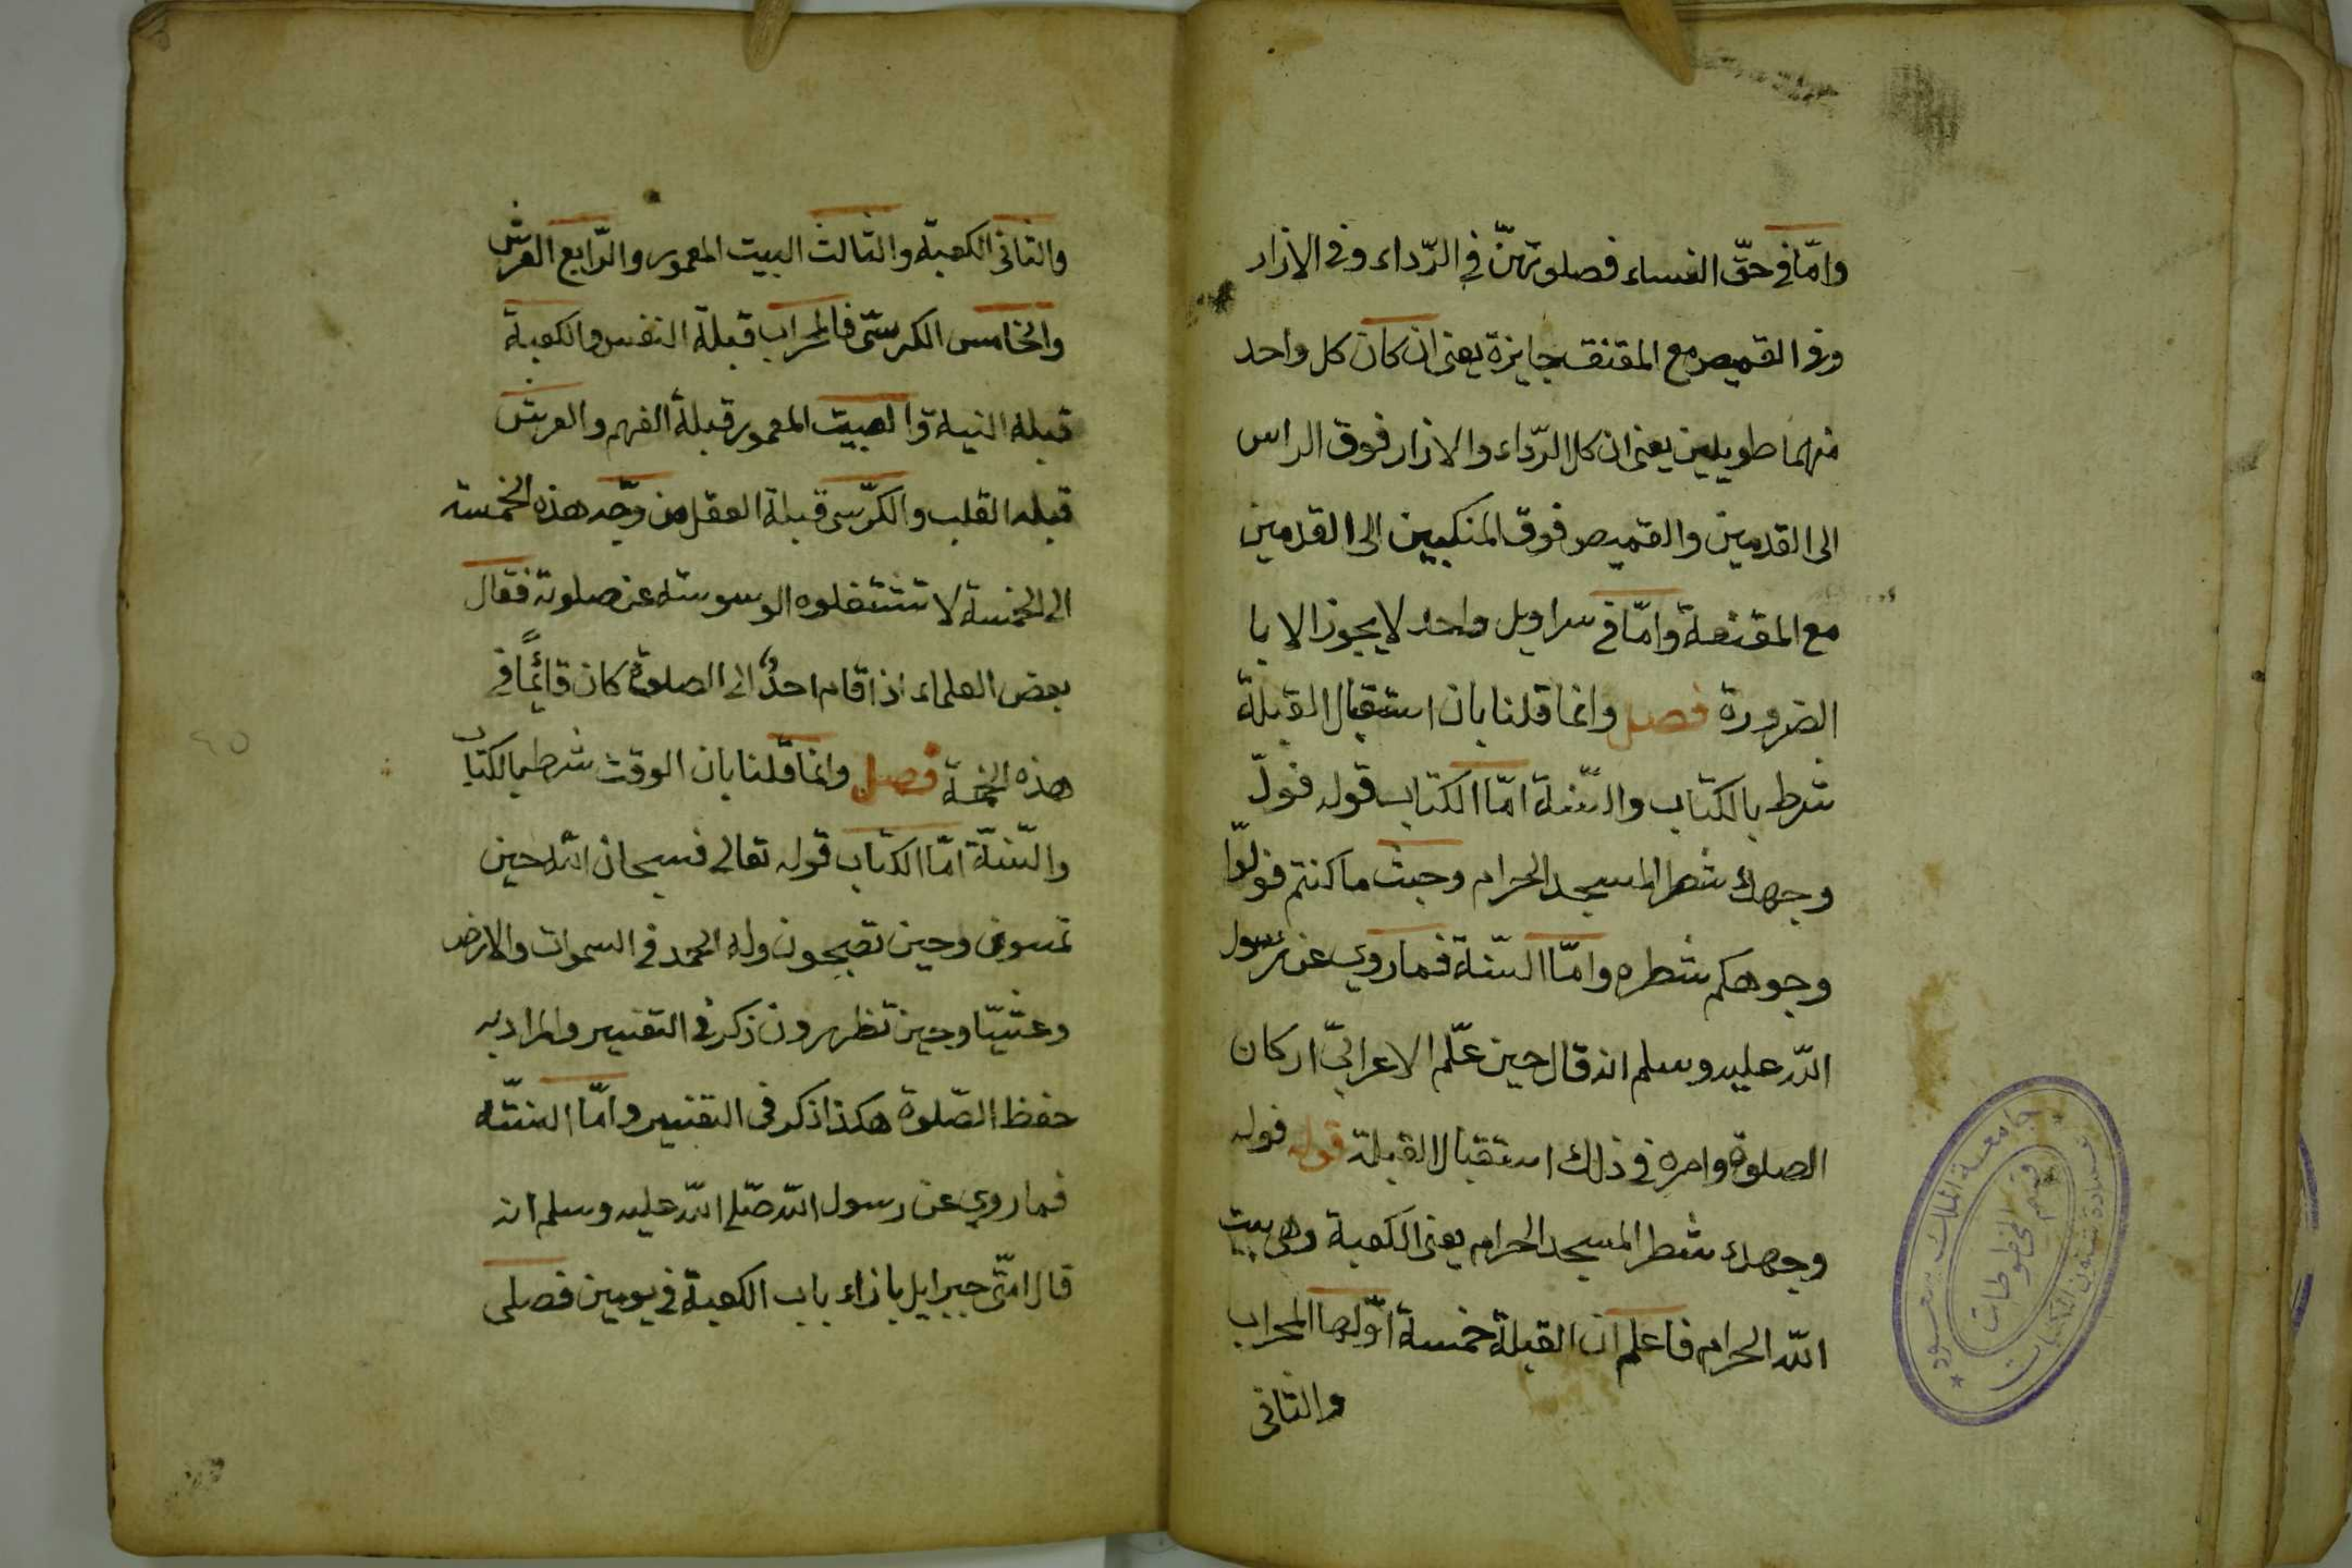 وامّا في حقّ النساء فصلوتهنّ في الرّداء وفي الازار
وفي القميص مع المقنقه جايزة يعني ان كان كل واحد
منهما طويلين يعني ان كل الرّداء والازار فوق الراس
الى القدمين والقميص فوق المنكبين الى القدمين
مع المقنعة وامّا في سراويل واحد لا يجوز الا با
الضرورة فصل وانما قلنا بان استقبال القبلة
شرط بالكتاب والسّنة امّا الكتاب قوله فولّ
وجهك شطر المسجد الحرام وحيث ما كنتم فولّوا
وجوهكم شطره وامّا السّنة فما روي عن رسول
اللّه عليه وسلم انه قال حين علّم الاعرابيّ اركان
الصلوة وامره في ذلك استقبال القبلة قوله فوله
وجهك شطر المسجد الحرام يعني الكعبة وهي بيت
اللّه الحرام فاعلم ان القبلة خمسة اوّلها المحراب
والثاني
والثاني الكعبة والثالث البيت المعمور والرّابع العرش
والخامس الكرسّي فالمحراب قبلة النفس والكعبة
قبلة النية والبيت المعمور قبلة الفهم والعرش
قبله القلب والكرّسي قبلة العقل من وجّه هذه الخمسة
الى الخمسة لا تشتغلوه الوسوسة عن صلوته فقال
بعض العلماء اذا قام احدٌ الى الصلوة كان قائمًا في
هذه الخمسة فصل وانما قلنا بان الوقت شرط بالكتاب
والسّنّة امّا الكتاب قوله تعالى فسبحان اللّه حين
تمسون وحين تصبحون وله الحمد في السموات والارض
وعشيّا وحين تظهرون ذكر في التفسير والمراد به
حفظ الصّلوة هكذا ذكر في التفسير وامّا السنّة
فما روي عن رسول اللّه صلّى اللّه عليه وسلم انه
قال امّني جبرايل بازاء باب الكعبة في يومين فصلى
٢٥
جامعة الملك سعود
عمادة شئون المكتبات
قسم المخطوطات